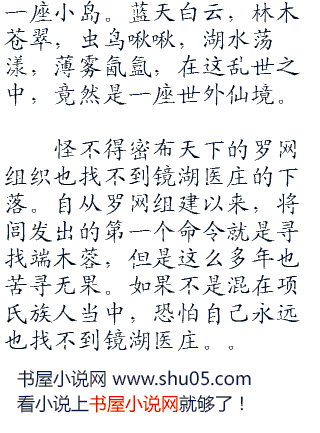 一座小岛。蓝天白云，林木
苍翠，虫鸟啾啾，湖水荡
漾，薄雾氤氲，在这乱世之
中，竟然是一座世外仙境。
怪不得密布天下的罗网
组织也找不到镜湖医庄的下
落。自从罗网组建以来，将
闾发出的第一个命令就是寻
找端木蓉，但是这么多年也
苦寻无果。如果不是混在项
氏族人当中，恐怕自己永远
也找不到镜湖医庄。。
书屋小说网 www.shu05.com
看小说上书屋小说网就够了！